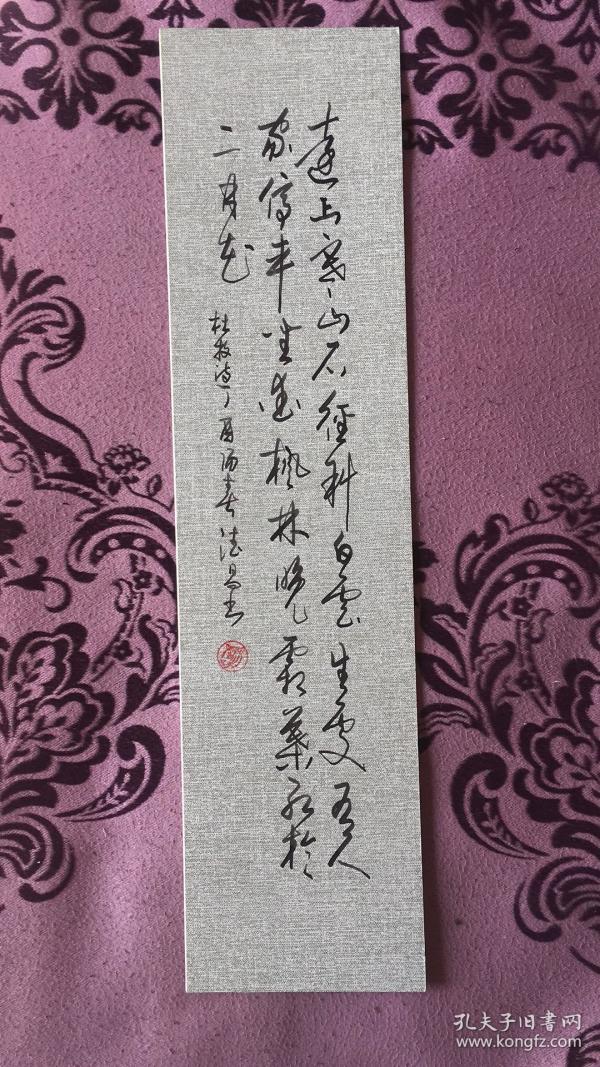 远上寒山石径斜白云生处有人
家停车坐爱枫林晚霜叶红於
二月花
杜牧诗丁酉师春德昌书
孔夫子旧书网
www.kongfz.com